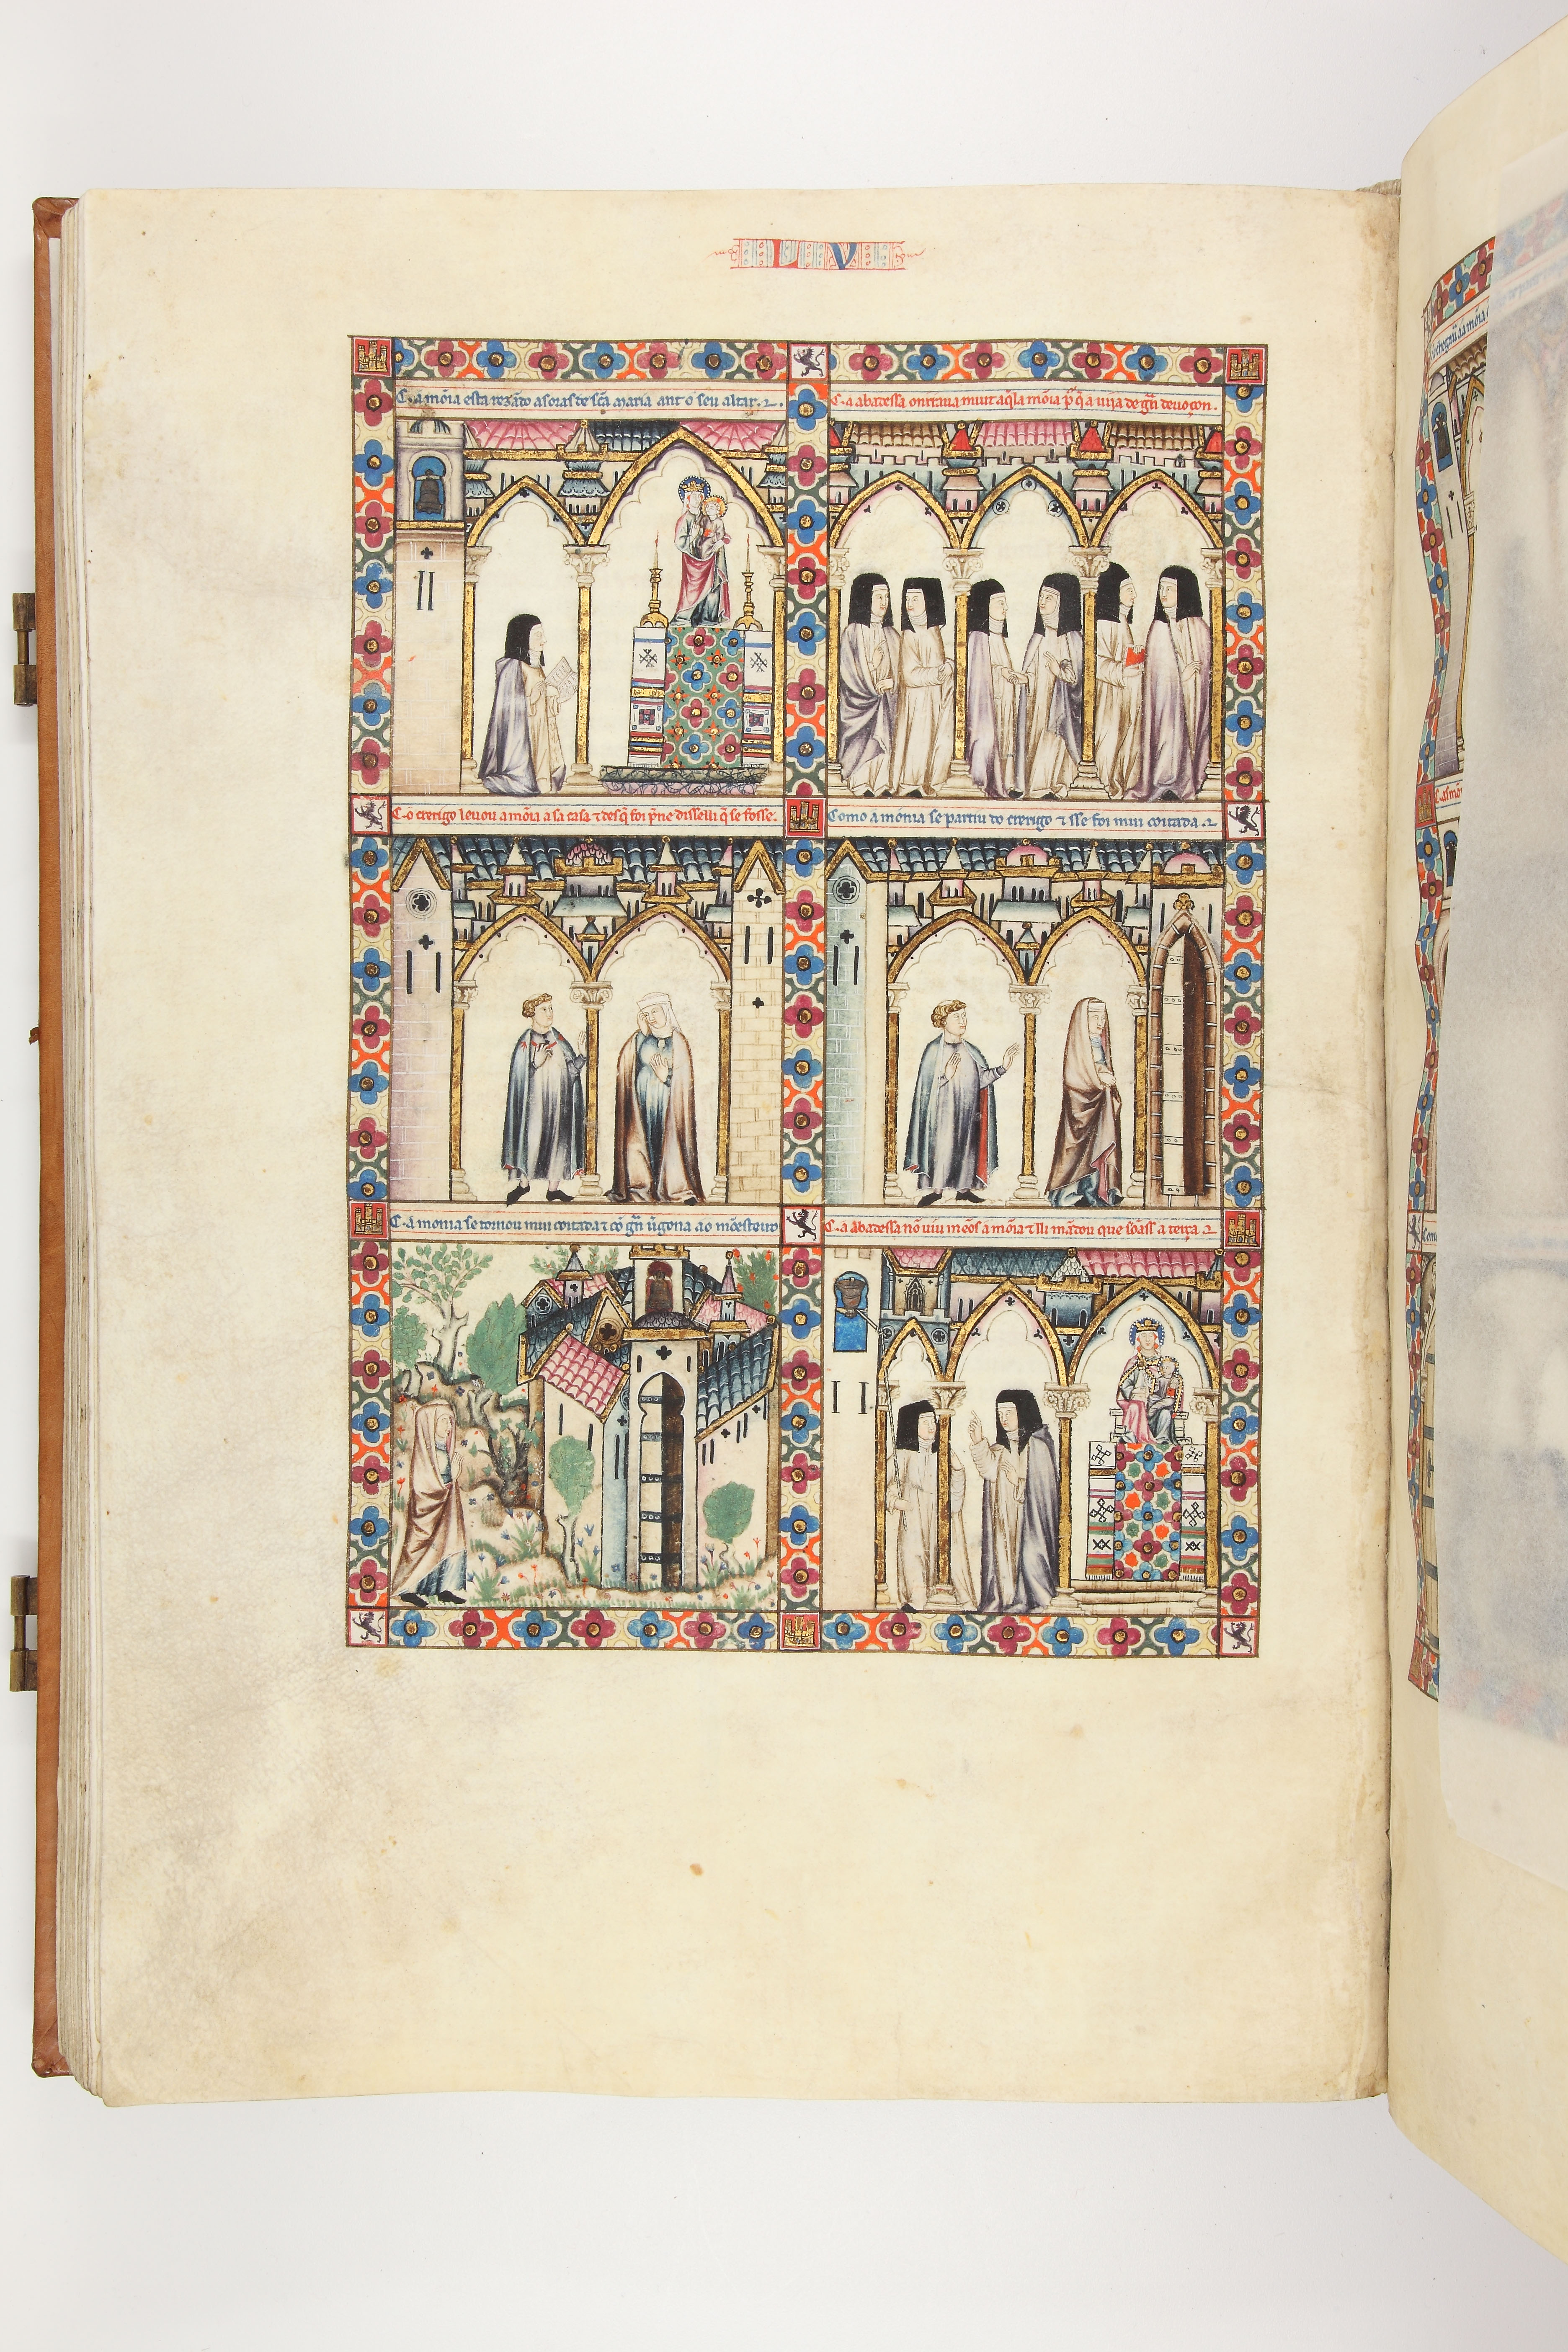 L V
C. a mõia esta rezãdo as oras de scã maria ant o seu altar.
C. a abadessa onrraua muit aq̃la mõia p̃ q̃ a uija de grã deuoçon.
C. o crerigo leuou a mõia a sa casa ⁊ desq̃ foi p̃ne disselli q̃ se fosse.
Como a monia se partiu do crerigo ⁊ sse foi mui coitada.
C. a monia se tornou mui coitada ⁊ cõ grã u̇gona ao mõesteiro
C. a abadessa nõ uiu mẽos a mõia ⁊ lli mãdou que sõass a terça.